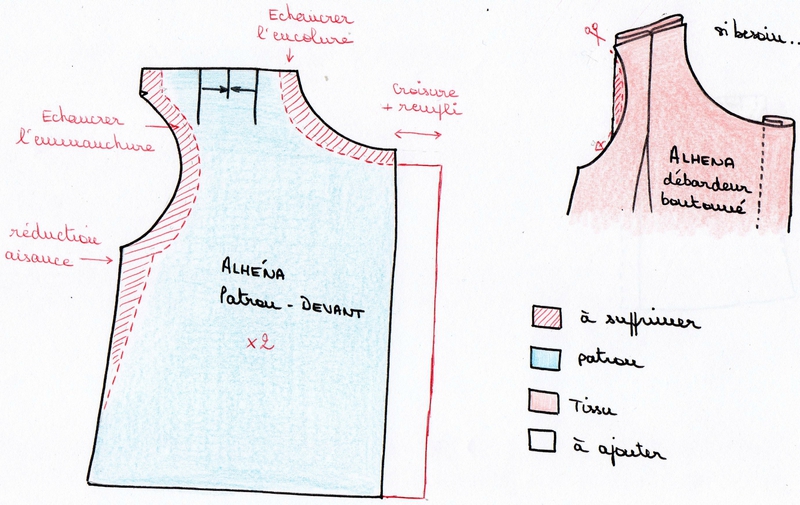 Echancrer
l'encolure
si besoin...
croisure
+ rempli
Echancrer
l'emmanchure
ALHENA
débardeur
boutonné
réduction
aisance
ALHÉNA
Patron - DEVANT
x2
à supprimer
patron
Tissu
à ajouter